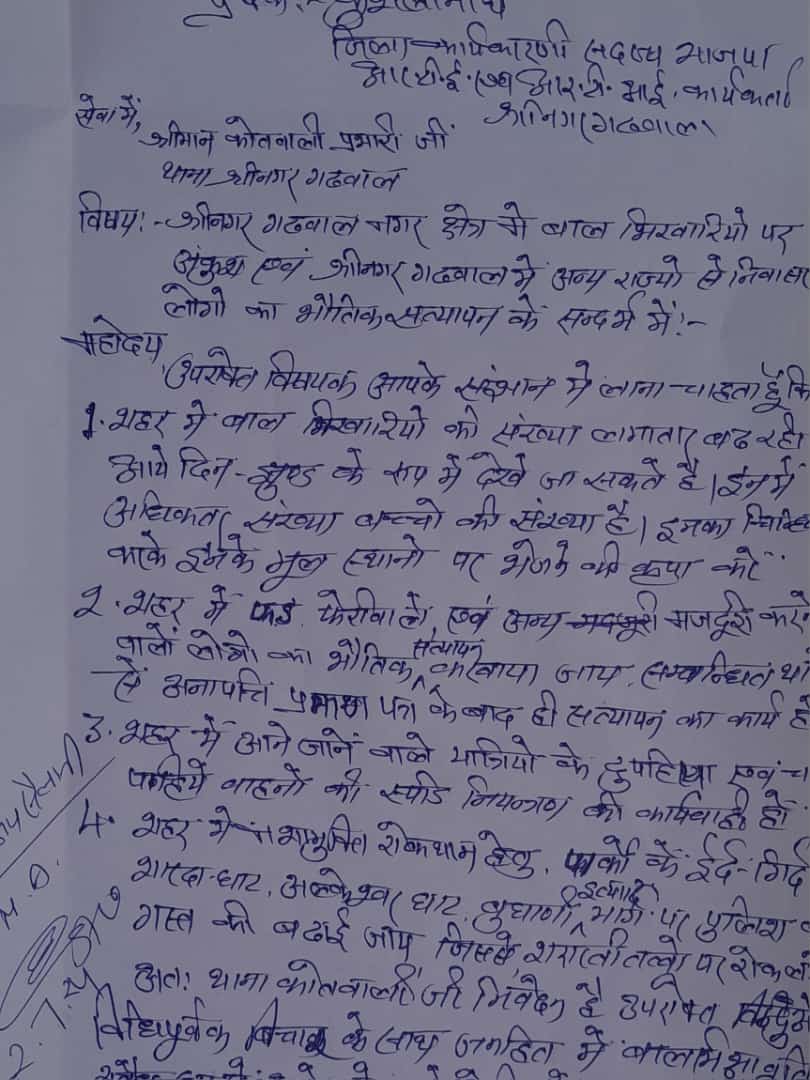 प्रेषक:-
जिला कार्यकारणी सदस्य भाजपा
आर.टी.ई. एवं आर.टी. आई. कार्यकर्ता
श्रीनगर गढवाल
सेवा में,
श्रीमान कोतवाली प्रभारी जी
थाना श्रीनगर गढवाल
विषय:- श्रीनगर गढवाल नगर क्षेत्र मे बाल भिखारियो पर
अंकुश एवं श्रीनगर गढवाल में अन्य राज्यो से
लोगो का भौतिक सत्यापन के सन्दर्भ में:-
महोदय,
उपरोक्त विषयक आपके संज्ञान मे लाना चाहता हूँ कि
1. शहर मे बाल भिखारियो की संख्या लगातार बढ रही
आये दिन झुण्ड के रूप में देखे जा सकते है। इनमें
अधिकतर संख्या बच्चो की संख्या है। इनका
करके इनके मूल स्थानो पर भेजने की कृपा करें
2. शहर में फड, फेरीवाले, एवं अन्य मजदूरी करने
वालें लोगो का भौतिक सत्यापन करवाया जाय, सम्बन्धित
से अनापत्ति प्रमाण पत्र के बाद ही सत्यापन का कार्य
3. शहर में आने जाने वाले यात्रियो के दुपहिया एवं
पहिये वाहनों की स्पीड नियन्त्रण की कार्यवाही हो
4. शहर मे रोकथाम हेतु, पार्को के ईर्द-गिर्द
शारदा घाट, अल्केश्वर घाट, इत्यादि मार्ग पर पुलिस
गस्त की बढाई जाय जिससे शरारती तत्वो पर रोक
अत: थाना कोतवाली जी निवेदन है उपरोक्त
विधिपूर्वक विचार के साथ जनहित में
M.D.
2.7.24